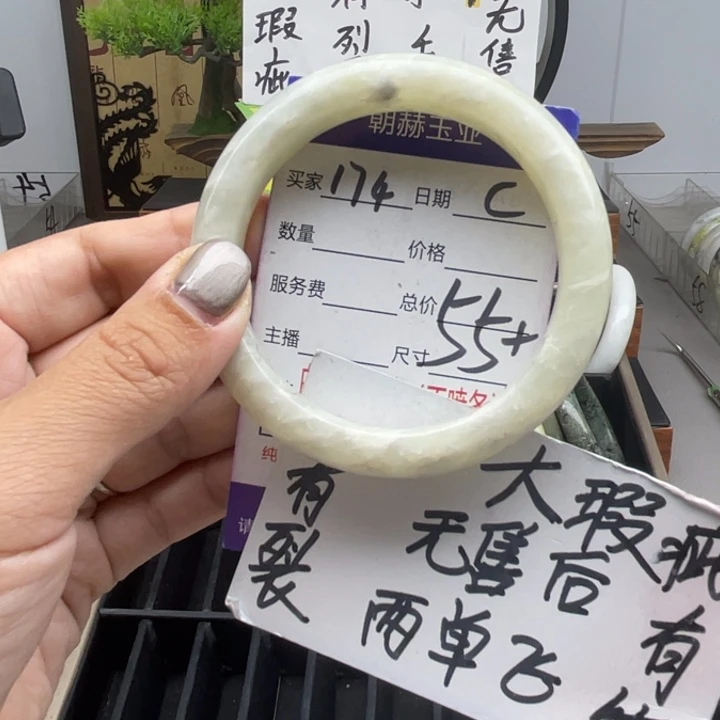 瑕
疵
裂
无
售
凤
朝赫玉业
买家 174 日期 C
数量 价格
服务费 总价 55+
主播 尺寸
纯
请
有
裂
大瑕疵
无售后 有
两单飞